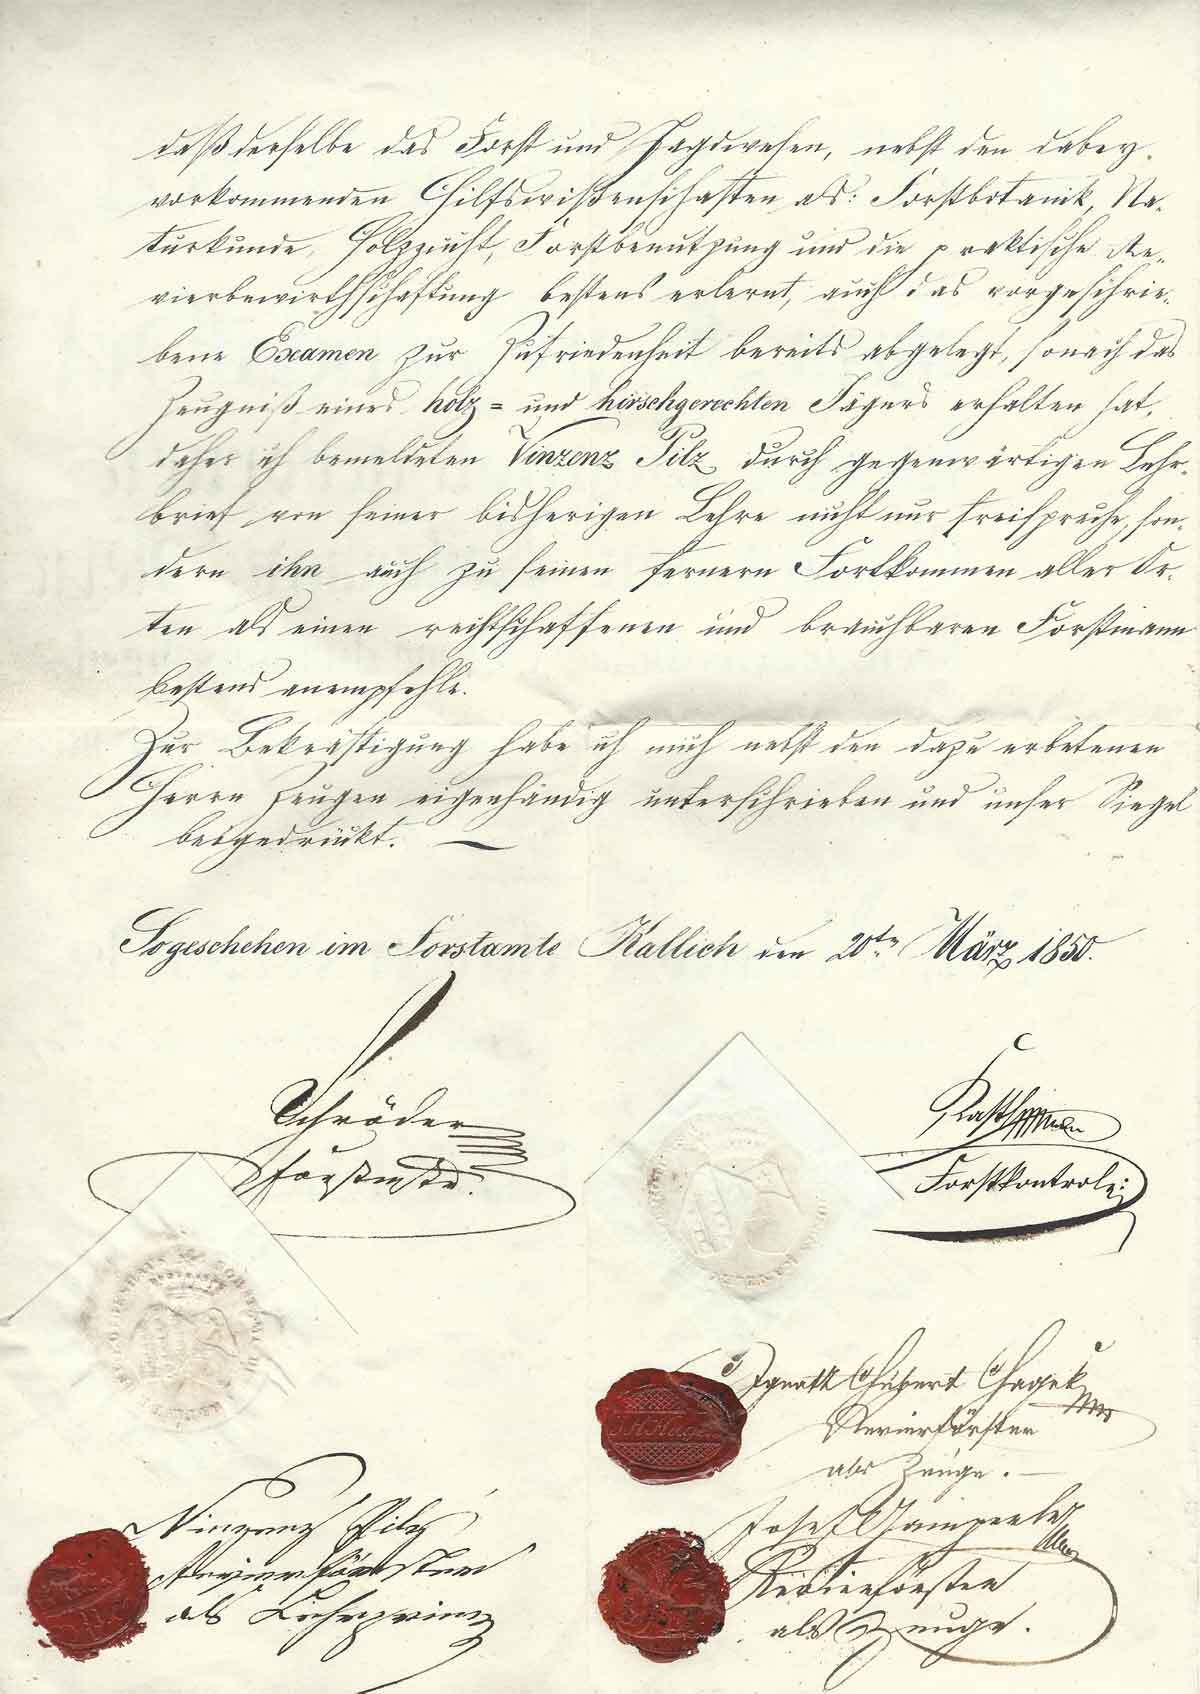 daß derselbe das Forst und Jagdwesen, nebst den dabey
vorkommenden Hilfswißenschaften als: Forstbotanik, Na-
turkunde, Holzzucht, Forstbenutzung und die praktische Re-
vierbewirthschaftung bestens erlernt, auch das vorgeschrie-
bene Examen zur Zufriedenheit bereits abgelegt, sonach das
Zeugniß eines holz= und hirschgerechten Jägers erhalten hat,
daher ich bemeldeten Vinzenz Pilz durch gegenwärtigen Lehr-
brief von seiner bisherigen Lehre nicht nur freispreche, son-
dern ihn auch zu seinen fernern Fortkommen aller Or-
ten als einen rechtschaffenen und brauchbaren Forstmann
bestens anempfehle.
Zur Bekräftigung habe ich mich nebst den dazu erbetenen
Herrn Zeugen eigenhändig unterschrieben und unser Siegel
beigedrückt. —
So geschehen im Forstamte Kallich den 20ten März 1850.
Schröder
Forstmstr.
Forstkontrole:
Ignatz Hubert Hayek
Revierförster
als Zeuge. —
Vinzenz Pilz
Revierförster
als Lehrprinz
Josef
Revierförster
als Zeuge.